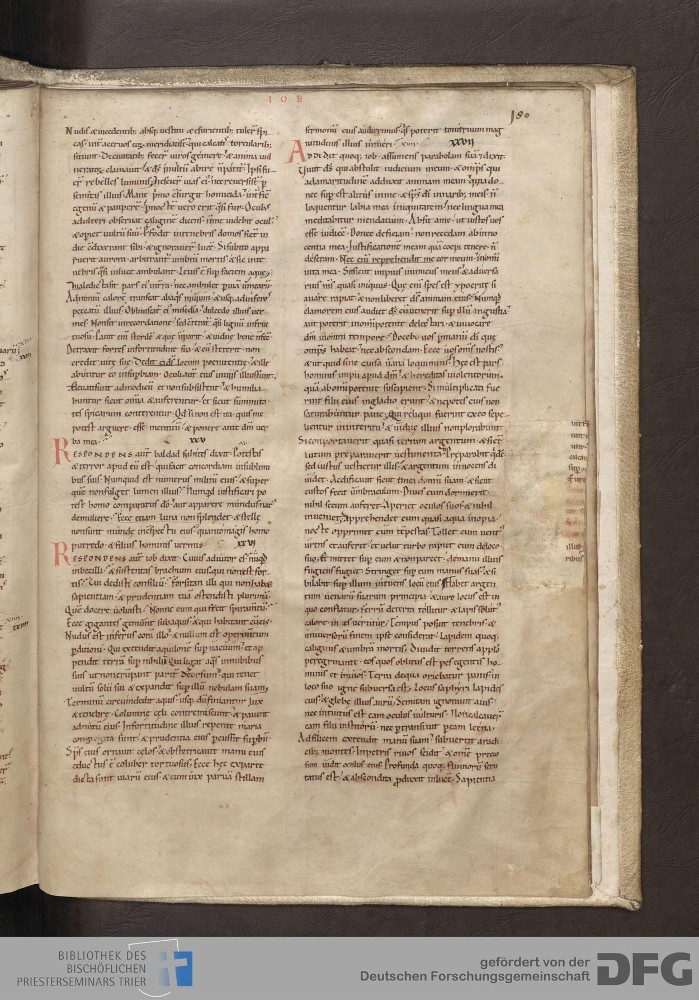 IOB
180
Nudis & incedentib; absq; uestitu & esurientib; tuler̄ spi
cas. int̄ aceruos eoɀ meridiati sɫ qui calcatis torcularib;
sitiunt. De ciuitatib; fecer̄ uiros gemere. & anima uul
neratoɀ clamauit. & dš inultū abire n̄ patit᷑. Ipsi fu
er̄ rebelles lumini. Nescier̄ uias ei᷒. nec reuersi sɫ ꝑ
semitas illius. Mane primo c̄surgit homicida. int̄ficit
egenū & pauperē. ꝑ nocte᷑ uero erit q̄si fur. Ocul᷒
adulteri obseruat caliginē dicens. n̄ me uidebit ocul᷒
& operiet uultū suū. Ꝑfodit in tenebris domos sicut in
die c̄dixerant sibi. & ignorauer̄ lucē. Si subito appa
ruerit aurora. arbitrant᷑ umbrā mortis. & sic in te
nebris q̄si in luce ambulant. Leuis ē sup̄ faciem aquę.
maledicta sit pars ei᷒ in t̄ra. nec ambulet ꝑ uiā uinearū.
Ad nimiū calorē transeat ab aquis niuium. & usq; ad inferos
peccatū illius. Obliuiscat᷑ ei᷒ misc̄dia. dulcedo illius uer
mes. Non sit in recordatione. sed c̄terat᷑ q̄si lignū infruc
tuosū. Pauit eni sterilē & quę n̄ parit. & uiduę bene n̄ fecit.
Detraxit fortes in fortitudine sua. & cū steterit non
credet uitę suę. Dedit ei dš locum penitentię. & ille
abutitur eo in supbiam. Oculi autē ei᷒ sɫ in uiis illius.
Eleuati sunt ad modicū & non subsistent. & humilia
buntur sicut om̄ia. & auferentur. & sicut summita
tes spicarum conterentur. Qd si non est ita. quis me
potest arguere. esse mentitū. & ponere ante dm̄ uer
ba mea.
XXV
RESPONDENS aut̄ baldad suhites dixit. Potestas
& terror apud eū est. qui facit concordiam in sublimib;
suis. Numquid est numerus militū eius. & super
quē non surget lumen illius. Numqd iustificari po
test homo comparatus dō. aut apparere mundus nat᷒
de muliere. Ecce etiam luna non splendet. & stellę
non sunt mundę in c̄spectu eius. quanto magis homo
putredo. & filius hominis uermis.
XXVI
RESPONDENS aut̄ iob dixit. Cuius adiutor es. nūqd
inbecilli. & sustentas brachium eius qui non est for
tis. Cui dedisti consiliū. forsitan illi qui non habet
sapientiam. & prudentiam tuā ostendisti plurimā.
Quē docere uoluisti. Nonne eum qui fecit spiramen̄.
Ecce gigantes gemunt sub aquis. & qui habitant cū eis.
Nudus est infernus corā illo. & nullum est operimentum
ꝑditioni. Qui extendit aquilonē sup̄ uacuum. & ap
pendit terrā sup̄ nihilū. Qui ligat aq̄s in nubibus
suis. ut non erūpant parit᷑ deorsum. qui tenet
uultū solii sui. & expandit sup̄ illū nebulam suam.
Terminū circumdedit aquis. usq; dū finiantur lux
& tenebrę. Columnę cęli contremiscunt. & pauent
ad nutū eius. In fortitudine illius repente maria
congregata sunt. & prudentia eius ꝑcussit supbū.
Sp̄s eius ornauit cęlos. & obstetricante manu eius
eductus ē coluber tortuosus. Ecce hęc ex parte
dicta sunt uiarū eius. & cum uix paruā stillam
sermonū eius audierimus. q̄s poterit tonitruum mag
nitudinis illius intueri.
XXVII
ADDIDIT quoq; iob. assumens parabolam suā. & dixit.
Viuit dš qui abstulit iudicium meum. & om̄ps qui
ad amaritudinē adduxit animam meam. quia do
nec sup̄est alitus in me. & sp̄s dī in narib; meis. n̄
loquentur labia mea iniquitatem. nec lingua mea
meditabitur mendatium. Absit a me ut iustos uos
esse iudicē. Donec deficiam. non recedam ab inno
centia mea. Iustificationē meam quā coepi tenere. n̄
deseram. Nec eni reprehendit me cor meum. in om̄i
uita mea. Sit sicut impius inimicus meus. & aduersa
rius m̄s quasi iniquus. Quę eni spes est ypocritę si
auare rapiat. & non liberet dš animam eius. Numqd
clamorem eius audiet dš. cū uenerit sup̄ illū angustia.
aut poterit in omnipotente delectari. & inuocare
dm̄ in om̄i tempore. Docebo uos ꝑ manū dī. quę
om̄ps habeat. nec abscondam. Ecce uos om̄s nostis.
& ut quid sine causa uana loquimini. Hęc est pars
hominis impii apud dm̄. & hereditas uiolentorum.
quā ab om̄ipotente suscipient. Si multiplicati fue
rint filii eius. in gladio erunt. & nepotes eius non
saturabuntur pane. Qui reliqui fuerint ex eo. sepe
lientur in interitu. & uiduę illius non plorabunt.
Si comportauerit quasi terram argentum. & sicut
lutum pręparauerit uestimenta. Pręparabit quidē.
sed iustus uestietur illis. & argentum innocens di
uidet. Aedificauit sicut tinea domū suam. & sicut
custos fecit umbraculum. Diues cum dormierit
nihil secum auferet. Aperiet oculos suos. & nihil
inueniet. Apprehendet eum quasi aqua inopia.
nocte opprimet eum tēpestas. Tollet eum uent᷒
urens & auferet. & uelut turbo rapiet eum de loco
suo. & mittet sup̄ eum. & non parcet. de manu illius
fugiens fugiet. Stringet sup̄ eum manus suas. & si
bilabit sup̄ illum. intuens locū eius. Habet argen
tum uenarū suarum principia. & auro locus est in
quo conflatur. Ferrū de terra tollitur. & lapis solut᷒
calore in ęs uertitur. Tempus posuit tenebris. &
uniuersorū finem ipse considerat. Lapidem quoq;
caliginis. & umbrā mortis. Diuidit torrens a pplō
peregrinante. eos quos oblitus est pes egentis ho
minis. & inuios. Terra de qua oriebatur panis in
loco suo igne subuersa est. Locus saphyri lapides
eius. & glebę illius aurū. Semitam ignorauit auis.
nec intuitus est eam oculus uulturis. Non calcauer̄t
eam filii institorū. nec ꝑtransiuit ꝑ eam leęna.
Ad silicem extendit manū suam. subuertit a radi
cib; montes. In petris riuos scidit. & om̄ē precio
sum uidit oculus eius. Profunda quoq; fluuiorū scru
tatus est. & abscondita ꝓduxit in lucē. Sapientia
BIBLIOTHEK DES
BISCHÖFLICHEN
PRIESTERSEMINARS TRIER
gefördert von der
Deutschen Forschungsgemeinschaft
DFG